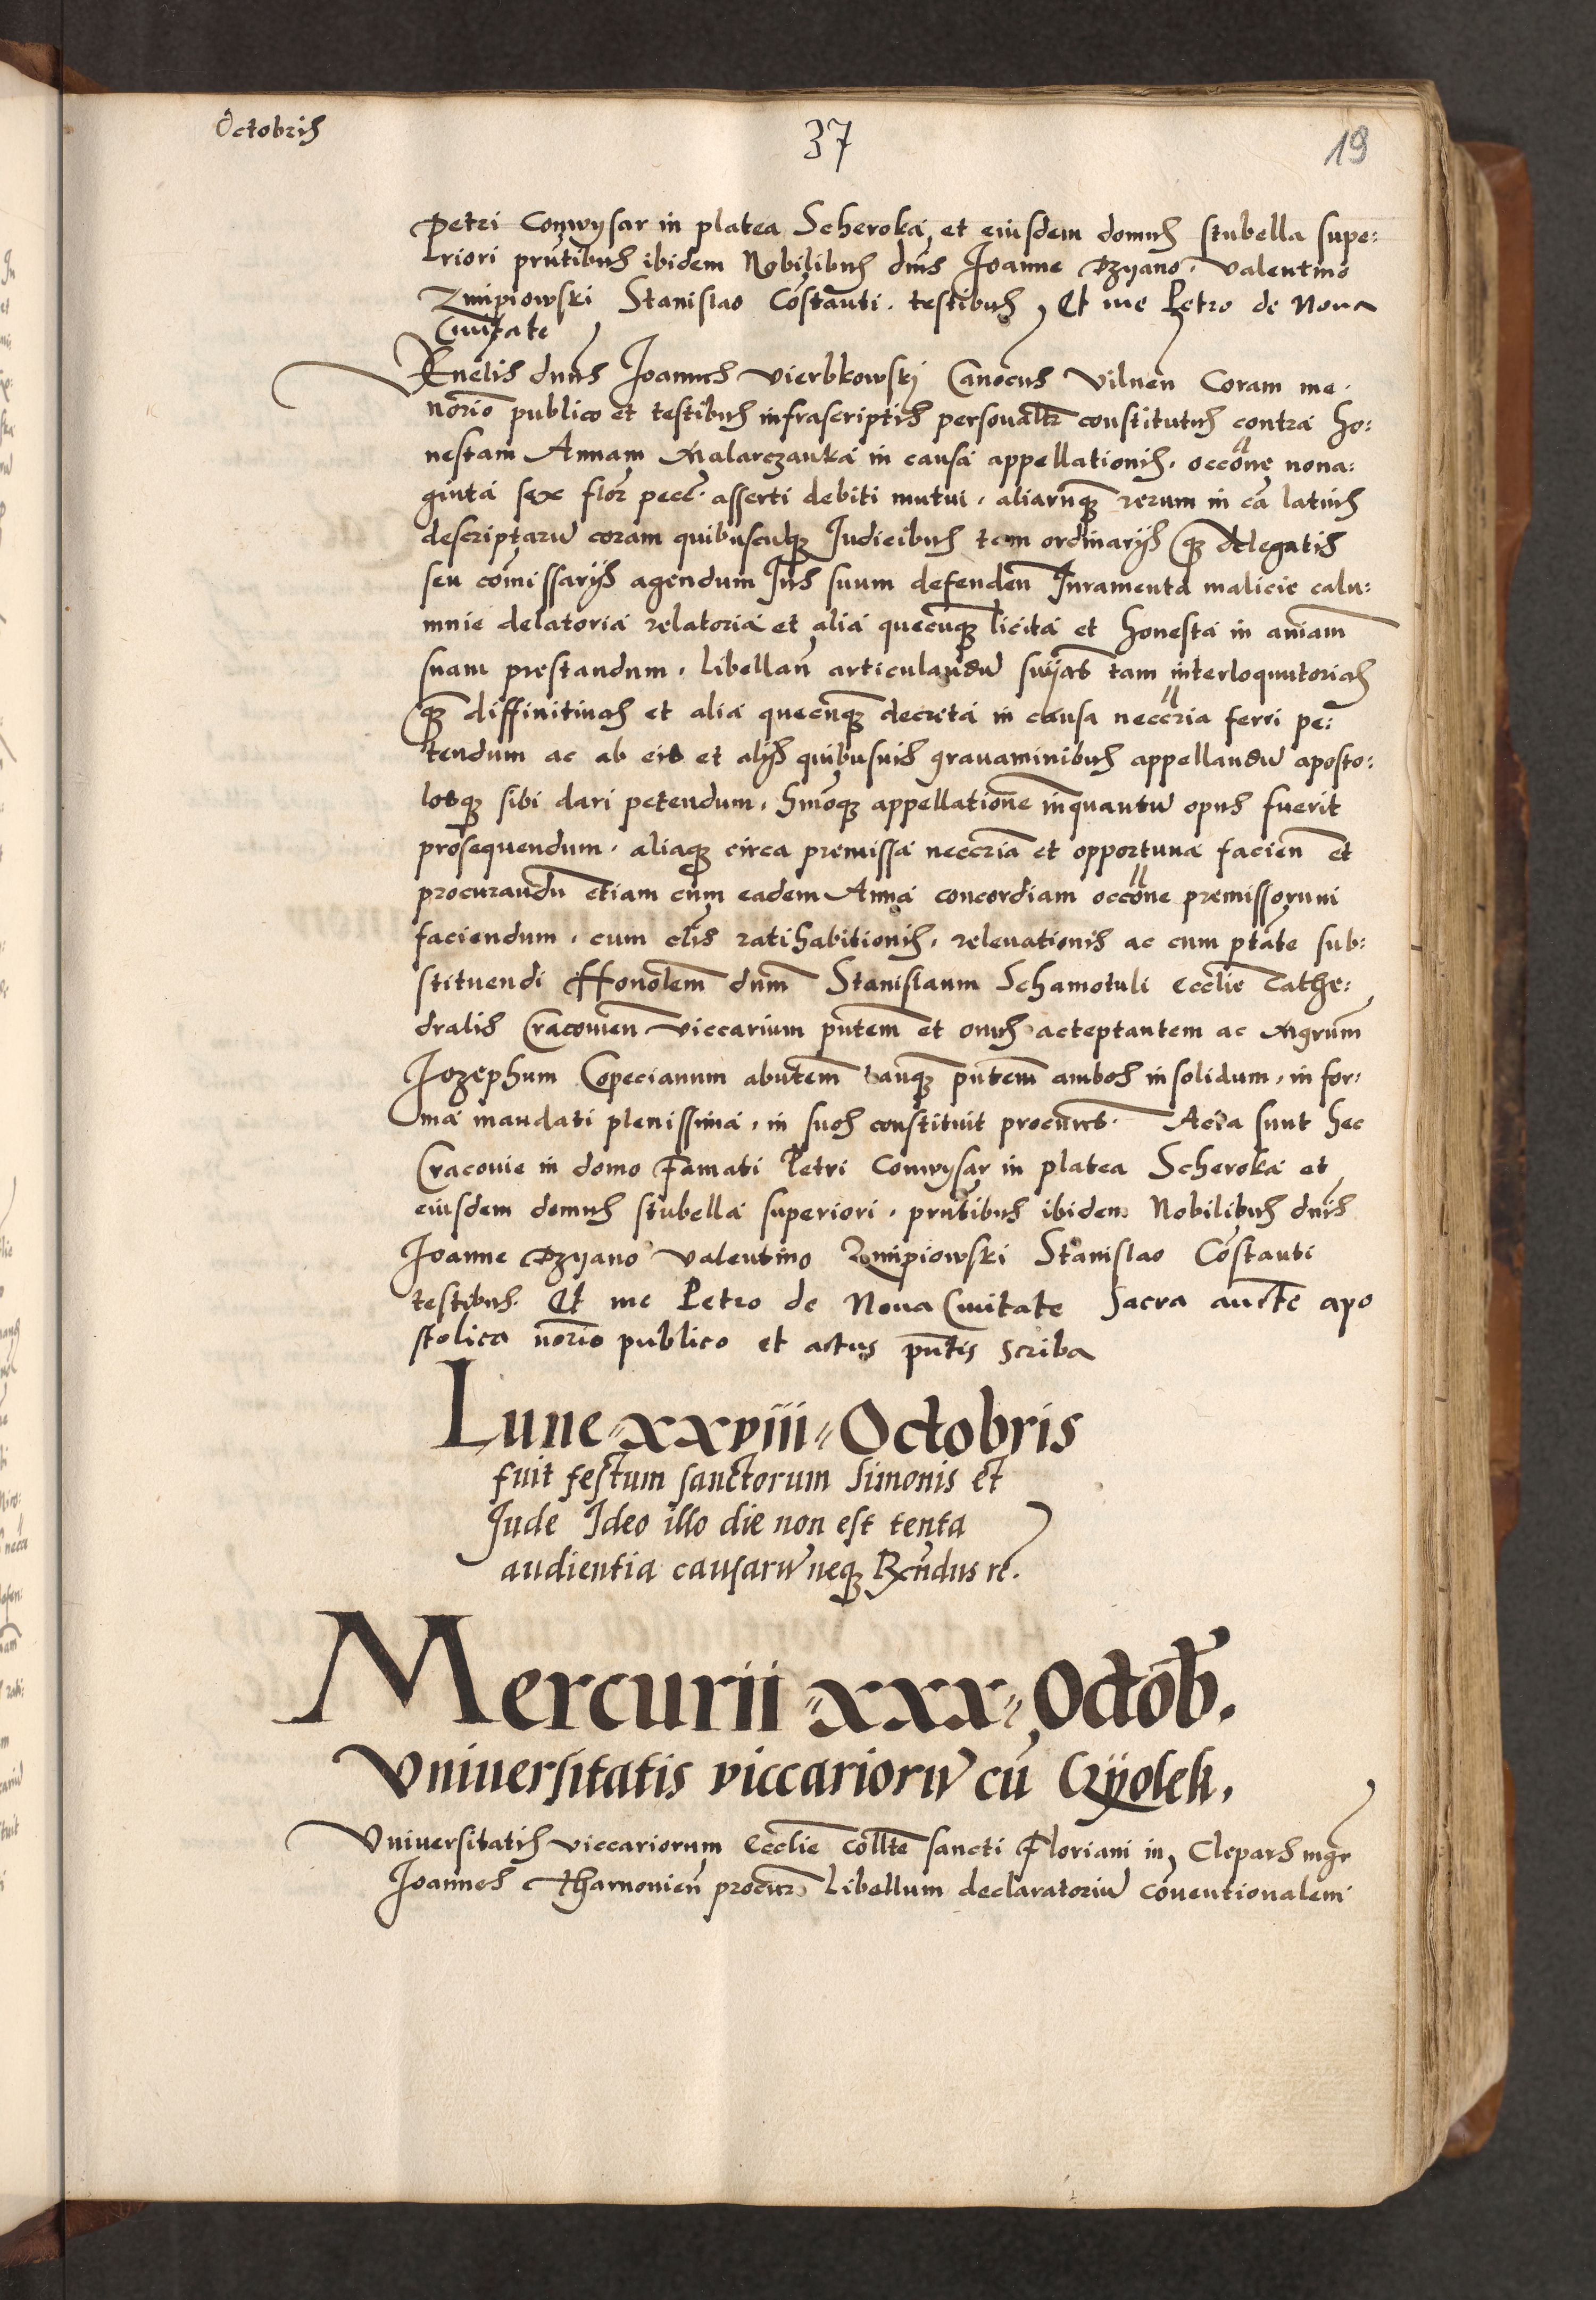 Octobris
37
19
Petri Conwysar in platea Scheroka, et eiusdem domus stubella supe:
riori prutibus ibidem Nobilibus dnis Joanne Dzyano, Valentino
Zmipiowski Stanislao Costanti. testibus, Et me Petro de Nova
Civitate
Vnelis dnus Joannes Vierbkowskj Canocus Vilnen Coram me.
norio publico et testibus infrascriptis personaltr constitutus contra ho:
nestam Annam Malarczanka in causa appellationis. occone nona:
ginta sex flor pecc. asserti debiti mutui, aliarumque rerum in ea latius
descriptaru coram quibuscunque Judicibus tam ordinarijs que delegatis
seu comissarijs agendum Jus suum defenden Juramenta malicie calu:
mnie delatoria relatoria et alia quecunque licita et honesta in aniam
suam prestandum. Libellan articulandu snias tam interloquutorias
que diffinitivas et alia quecunque decreta in causa neccria ferri pe:
tendum ac ab eis et alijs quibusvis gravaminibus appellandu aposto:
losque sibi dari petendum, hmoque appellatione inquantu opus fuerit
prosequendum. aliaque circa premissa neccria et opportuna facien et
procurandu etiam cum eadem Anna concordiam occone premissorum
faciendum. cum clis ratihabitionis. relevationis ac cum ptate sub:
stituendi Honolem dnm Stanislaum Schamotuli Ecclie Cathe:
dralis Cracovien viccarium pntem et onus acceptantem ac Mgrum
Jozephum Copecianum abntem tanque pntem ambos insolidum, in for:
ma mandati plenissima, in suos constituit procures. Acta sunt hec
Cracovie in domo Famati Petri Conwysar in platea Scheroka et
eiusdem domus stubella superiori. prutibus ibidem Nobilibus dnis
Joanne Dzyano Valentino Zmipiowski Stanislao Costanti
testibus. Et me Petro de Nova Civitate Sacra aucte apo
stolica norio publico et actus pntis scriba
Lune xxviii Octobris
fuit festum sanctorum Simonis et
Jude Ideo illo die non est tenta
audientia causaru neque Rndus rc.
Mercurii xxx Octob.
Universitatis viccarioru cu Czyolek.
Universitatis viccariorum Ecclie collte sancti Floriani in Clepars mgr
Joannes Tharnovien procur Libellum declaratoriu conventionalem